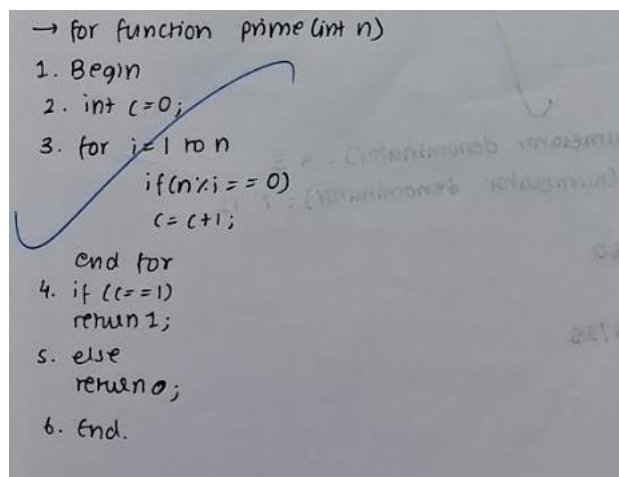 → for function prime(int n)
1. Begin
2. int c=0;
3. for i=1 to n
if(n%i==0)
c=c+1;
end for
4. if (c==1)
return 1;
5. else
return 0;
6. End.